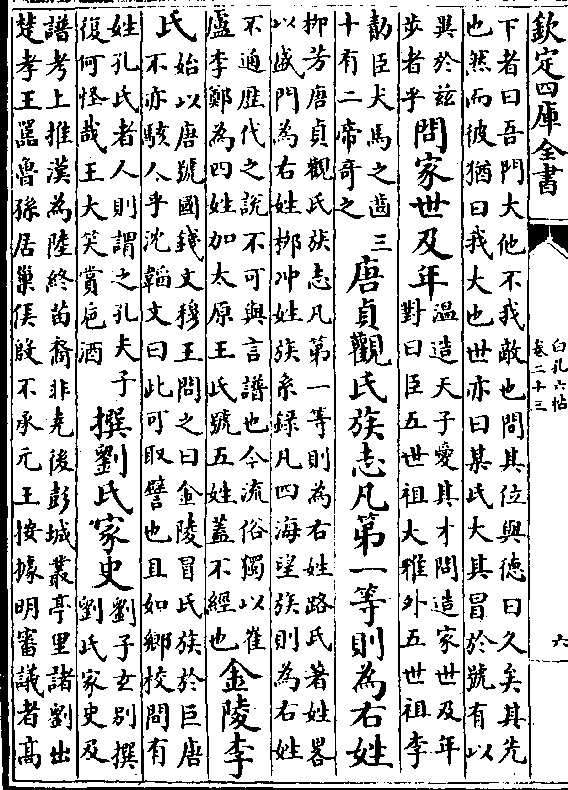 欽定四庫全書
白孔六帖
卷二十三
六
下者曰吾門大他不我敵也問其位與德曰久矣其先
也然而彼猶曰我大也世亦曰某氏大其冒於號有以
異於兹
步者乎
問家世及年
温造天子愛其才問造家世及年
對曰臣五世祖大雅外五世祖李
勣臣犬馬之齒三
十有二帝奇之
唐貞觀氏族志凡第一等則為右姓
柳芳唐貞觀氏族志凡第一等則為右姓路氏著姓畧
以盛門為右姓柳冲姓族系録凡四海望族則為右姓
不通歴代之說不可與言譜也今流俗獨以崔
盧李鄭為四姓加太原王氏號五姓蓋不經也
金陵李
氏
始以唐號國錢文穆王問之曰金陵冒氏族於巨唐
不亦駭人乎沈韜文曰此可取譬也且如鄉校問有
姓孔氏者人則謂之孔夫子
復何怪哉王大笑賞巵酒
撰劉氏家史
劉子玄别撰
劉氏家史及
譜考上推漢為陸終苗裔非堯後彭城叢亭里諸劉出
楚孝王囂魯孫居巢侯般不承元王按據明審議者高